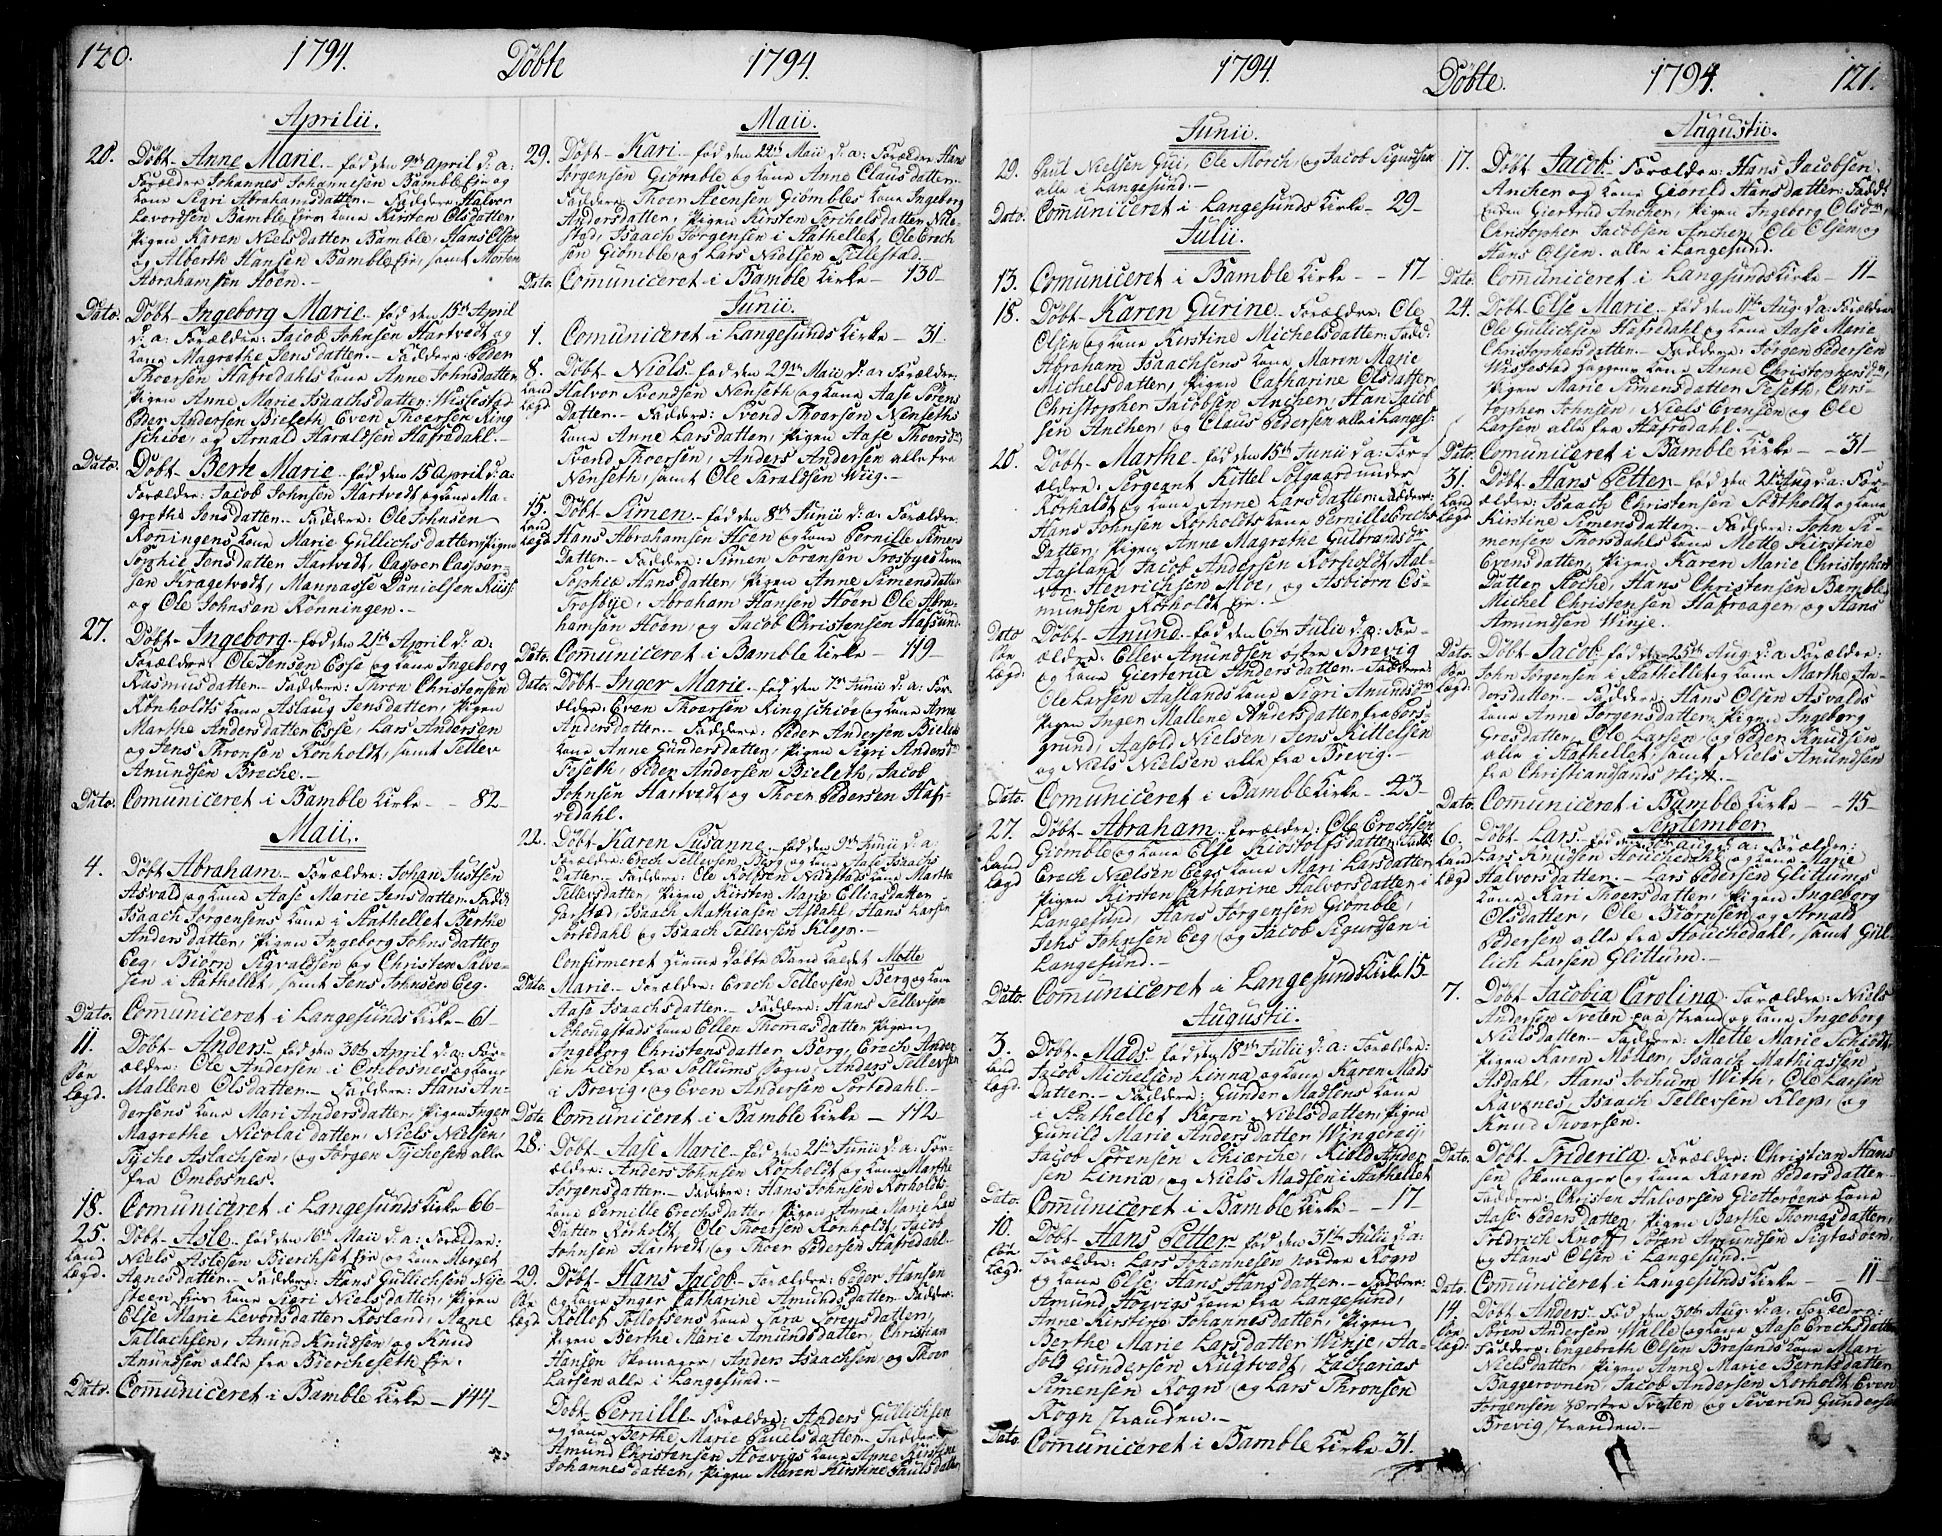 120. 1794. Döbte 1794.
Aprilii.
20. Döbt Anne Marie fød den 9de April d: a:
Forældre Johannes Johannesen Bamble Eje og
kone Sigri Abrahamsdatter. Faddere: Halvor
Levordsen Bamble Ejes kone Kirsten Olsdatter,
Pigen Karen Nielsdatter Bamble, Hans Olsen
og Alberth Hansen Bamble Eje, samt Morten
Abrahamsen Höen.
Dato. Döbt Ingeborg Marie fød den 15de April
d. a: Forældre: Jacob Johnsen Hartvedt og
kone Magrethe Jensdatter. Faddere: Peder
Thoersen Hafredahls kone Anne Johnsdatter,
Pigen Anne Marie Isaachsdatter Wissestad
Peder Andersen Bieleth, Even Thoersen Ring
schioe, og Arnald Haraldsen Hafredahl.
Dato. Döbt Berte Marie fød den 15 April d: a:
Forældre: Jacob Johnsen Hartvedt og kone Ma-
grethe Jensdatter. Faddere: Ole Johnsen
Röningens kone Marie Gullichsdatter, Pigen
Sophie Jensdatter Hartvedt, Casper Casper-
sen Kragetvedt, Mannasse Danielsen
og Ole Johnsen Rönningen.
27. Döbt Ingeborg fød den 21de April d. a:
Forældre: Ole Jensen Esse og kone Ingeborg
Rasmusdatter. Faddere: Thron Christensen
Rönholdts kone Aslaug Jensdatter, Pigen
Marthe Andersdatter Esse, Lars Andersen
og Jens Thronsen Rönholdt, samt Tellev
Amundsen Breche.
Dato. Comuniceret i Bamble Kirke - 82
Maii.
4. Döbt Abraham. Forældre: Johan Justsen
Asvald og kone Aase Marie Jensdatter. Fadd:
Isaach Jörgensens kone i Stathellet Berthe
Andersdatter, Pigen Ingeborg Johnsdatter
Eeg, Biørn Sigvaldsen og Christen Salve-
sen i Stathellet, samt Jens Johnsen Eeg.
Dato. Comuniceret i Langesunds Kirke 61
11. Döbt Anders fød den 30te April d: a: For-
ældre: Ole Andersen i Ombosnes og kone
Mallene Olsdatter. Faddere: Hans An-
Lægd. dersens kone Mari Andersdatter, Pigen Inger
Magrethe Nicolaidatter, Niels Nielsen,
Tyche Aslachsen, og Jörgen Tychesen alle
fra Ombosnes.
18. Comuniceret i Langesunds Kirke 66
25. Döbt Asle fød den 16de Maii d: a: Forældre:
Land Niels Aslesen Bierchset Eje og kone Margret
Lægd. Hansdatter. Faddere: Hans Gullichsen Nye
steen Ejes kone Sigri Nielsdatter, Pigen
Else Marie Levordsdatter Rosland, Aane
Tallachsen, Amund Knudsen og Knud
Amundsen alle fra Biercheseth Eje.
Dato. Comuniceret i Bamble Kirke - 144
Maii.
29. Döbt Kari fød den 22de Maii d: a: Forældre Hans
Jörgensen Giömble og kone Anne Clausdatter.
Faddere Thoer Steensen Giömbles kone Ingeborg
Andersdatter, Pigen Kirsten Torchelsdatter Nile-
stad, Isaach Jörgensen i Stathellet, Ole Erch
sen Giömble, og Lars Nielsen Tillestad.
Dato. Comuniceret i Bamble Kirke - 130
Junii.
1. Comuniceret i Langesunds Kirke - 31
8. Döbt Niels fød den 29de Maii d: a: Forældre
Land Halvor Svendsen Nenseth og kone Aase Sörens
Lægd Datter. Faddere: Svend Thoersen Nenseths
kone Anne Larsdatter, Pigen Aase Thoersdr
Svend Thoersen, Anders Andersen alle fra
Nenseth, samt Ole Taraldsen Wiig.
15. Döbt Simen fød den 8de Junii d: a: Forældre
Land Hans Abrahamsen Höen og kone Pernille Simens
Lægd Datter. Faddere: Simen Sörensen Trosbyes kone
Sophie Hansdatter, Pigen Anne Simensdatter
Trosbye, Abraham Hansen Höen Ole Abra-
hamsen Höen, og Jacob Christensen Hafsund.
Dato. Comuniceret i Bamble Kirke - 119
Dato. Döbt Inger Marie fød den 7de Junii d: a: For-
ældre Even Thoersen Ringschioe og kone Anne
Andersdatter. Faddere: Peder Andersen Bieleths
kone Anne Gundersdatter, Pigen Sigri Andersdr
Feseth, Peder Andersen Bieleth, Jacob
Johnsen Hartvedt og Thoer Pedersen Haf-
redahl.
22. Döbt Karen Susanne fød den 9de Junii d: a:
Forældre: Erech Tellevsen Berg og kone Aase Isaachs
Datter. Faddere: Ole Rolfsen Nilestads kone Marthe
Tellevsdatter, Pigen Kirsten Marie Elliasdatter
Garstad, Isaach Mathiasen Asdahl, Hans Larsen
Sortedahl og Isaach Tellevsen Klep.
Confirmeret hiemme döbte Barn kaldet Mette
Dato. Marie. Forældre: Erech Tellevsen Berg og kone
Aase Isaachsdatter. Faddere: Hans Tellevsen
Schougstads kone Ellen Thomasdatter Pigen
Ingeborg Christensdatter Berg, Erech Ander
sen Lien fra Sollums Sogn, Anders Tellevsen
i Brevig og Even Andersen Sortedahl.
Dato. Comuniceret i Bamble Kirke - 112
28. Döbt Aase Marie fød den 21de Junii d: a: For-
ældre: Anders Johnsen Rörholdt og kone Marthe
Jörgensdatter. Faddere: Hans Johnsen Rorholdts
kone Pernille Erechsdatter, Pigen Anne Marie Lars
Datter Rörholdt, Ole Thoersen Rönholdt, Jacob
Johnsen Hartvedt, og Thoer Pedersen Hafredahl.
29. Döbt Hans Jacob. Forældre: Peder Hansen
og kone Inger Catharine Amundsdatter. Faddere:
Lægd Rollof Tollofsens kone Sara Sörensdatter,
Pigen Berthe Marie Amundsdatter, Christian
Hansen Skomager, Anders Isaachsen, og Thron
Larsen alle i Langesund.
Döbt Pernille. Forældre: Anders Gullichsen
og kone Berthe Marie Pauelsdatter. Faddere
Amund Christensen Höevigs kone Anne Kirstine
Johannesdatter, Pigen Maren Kirstine Paulsdatter
1794. Döbte. 1794. 121.
Junii.
29. Paul Nielsen Gui, Ole Mörch, og Jacob Sigurdsen
alle i Langesund.
Dato. Comuniceret i Langesunds Kirke - 29
Julii.
13. Comuniceret i Bamble Kirke - 17
18. Döbt Karen Gurine. Forældre: Ole
Olsen og kone Kirstine Michelsdatter. Fadd:
Abraham Isaachsens kone Maren Marie
Michelsdatter, Pigen Catharine Olsdatter
Christopher Jacobsen Ancher, Han Jacob
sen Ancher, og Claus Pedersen alle i Langes:
20. Döbt Marthe fød den 15de Junii d: a: For-
ældre: Sergeant Kittel Solgaard under
Rörholdt og kone Anne Larsdatter. Faddere:
Hans Johnsen Rörholdts kone Pernille Erechs
Datter, Pigen Anne Magrethe Gulbrandsdr
Aasland, Jacob Andersen Rörholdt, Hal-
vor Henrichsen Moe, og Asbiörn Es-
mundsen Rörholdt Eje.
Dato Döbt Anund fød den 6te Julii d: a: For-
ældre: Ellev Amundsen östre Brevig
Lægd. og kone Gierterue Andersdatter. Faddere:
Ole Larsen Aallands kone Sigri Anundsdr
Pigen Inger Mallene Andersdatter fra Pors-
grund, Aasold Nielsen, Jens Kittelsen
og Niels Nielsen alle fra Brevig.
Dato. Comuniceret i Bamble Kirke - 43
27. Döbt Abraham. Forældre: Ole Erechsen
Land Giömble, og kone Else Kiostolfsdatter. Fadd:
Lægd Erech Nielsen Eegs kone Mari Larsdatter
Pigen Kirsten Catharine Halvorsdatter i
Langesund, Hans Jörgensen Giömble,
Jens Johnsen Eeg, og Jacob Sigurdsen i
Langesund.
Dato. Comuniceret i Langesunds Kirke 15
Augustii.
3. Döbt Mads fød den 18de Julii d: a: Forældre:
Land Jacob Michelsen Linna og kone Karen Mads
Lægd. Datter. Faddere: Gunder Madsens kone
i Stathellet Karen Nielsdatter, Pigen
Gunild Marie Andersdatter Wingereij,
Jacob Sörensen Schiærche, Kield Ander
sen Linna, og Niels Madsen i Stathellet
Dato. Comuniceret i Bamble Kirke - 17
10. Döbt Hans Petter fød den 31te Julii d: a:
Forældre: Lars Johannesen nordre Rogn
Lægd. og kone Else Hans Hansdatter. Faddere:
Amund Hoevigs kone fra Langesund,
Anne Kirstine Johannesdatter, Pigen
Berthe Marie Larsdatter Winje, Aa-
sold Gundersen Rugtvedt, Zacharias
Simensen Rogn, og Lars Thronsen
Rogn stranden.
Dato. Comuniceret i Bamble Kirke 31.
Augustii.
17. Döbt Jacob. Forældre: Hans Jacobsen
Ancher og kone Giorild Hansdatter. Fadd:
Enken Giertrud Ancher, Pigen Ingeborg Olsdr,
Christopher Jacobsen Ancher, Ole Olsen, og
Hans Olsen. alle i Langesund.
Dato. Comuniceret i Langsunds Kirke - 11
24. Döbt Else Marie fød den 11te Aug: d: a: Forældre
Ole Gullichsen Hafredahl og kone Aase Marie
Christophersdatter. Faddere: Jörgen Pedersen
Wissestad Haggens kone Anne Christophersdr,
Pigen Marie Simensdatter Feseth, Cars-
topher Johnsen, Niels Evensen og Ole
Larsen alle fra Hafredahl.
Dato. Comuniceret i Bamble Kirke - 31
31. Döbt Hans Petter fød den 21 Aug d: a: For-
Land ældre: Isaach Christensen Södtholdt og kone
Lægd Kirstine Simensdatter. Faddere: John Si-
mensen Thorsdahls kone Mette Kirstine
Evensdatter, Pigen Karen Marie Christophers
Datter Stoche, Hans Christensen Bamble,
Michel Christensen Hafreager, og Hans
Amundsen Winje.
Dato. Döbt Jacob fød den 25de Aug: d: a: Forældre:
John Jörgensen i Stathellet og kone Marthe An-
Lægd. dersdatter. Faddere: Hans Olsen Asvalds
kone Anne Jörgensdatter, Pigen Ingeborg
Gresdatter, Ole Larsen, og Peder Knudsen
alle i Stathellet, samt Niels Amundsen
fra Christiandsands Stift.
Dato. Comuniceret i Bamble Kirke - 45
September
6. Döbt Lars fød den Aug: d: a: Forældre:
Land Lars Knudsen Houchedahl og kone Marie
Lægd Halvorsdatter. Lars Pedersen Glittums
kone Kari Thoersdatter, Pigen Ingeborg
Olsdatter, Ole Biörnsen, og Arnald
Pedersen alle fra Houchedahl, samt Gul-
lich Larsen Glittum.
7. Döbt Jacobia Carolina. Forældre: Niels
Andersen Sveten paa strand og kone Ingeborg
Nielsdatter. Faddere: Mette Marie Schiödt,
Pigen Karen Möller, Isaach Mathiassen
Asdahl, Hans Jochum With, Ole Larsen
Ravenes, Isaach Tellevsen Klep, og
Knud Thoersen.
Dato. Döbt Friderica. Forældre: Christian Hans
sen Skomager og kone Karen Pedersdatter.
Faddere: Christen Halvorsen Gletteröens kone
Aase Pedersdatter, Pigen Berthe Thomasdatter,
Fredrich Knoff, Sören Amundsen Sigtesöen,
og Hans Olsen i Langesund.
Dato. Comuniceret i Langesunds Kirke - 11
14. Döbt Anders. Fød den 30te Aug: d. a. Forældre:
Sören Andersen Walle og kone Aase Erechsdatter
Lægd. Faddere: Engebreth Olsen Bresands kone Mari
Nielsdatter, Pigen Anne Marie Berntsdatter
Baggerovnen, Jacob Andersen Rörholdt Even
Jörgensen værstre Sveten og Severind Gundersen
Brevig stranden.